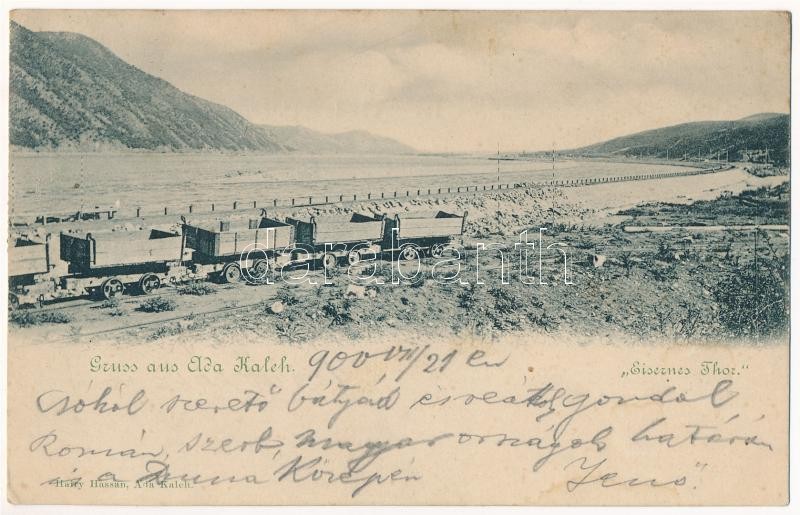 darabanth
Gruss aus Ada Kaleh. 900 VII/21 én
„Eisernes Thor."
Csókol szerető bátyád és reátok gondol
Román, szerb, magyar országok határán
és a Duna Közepén Jenő.
Harry Hassan, Ada Kaleh.